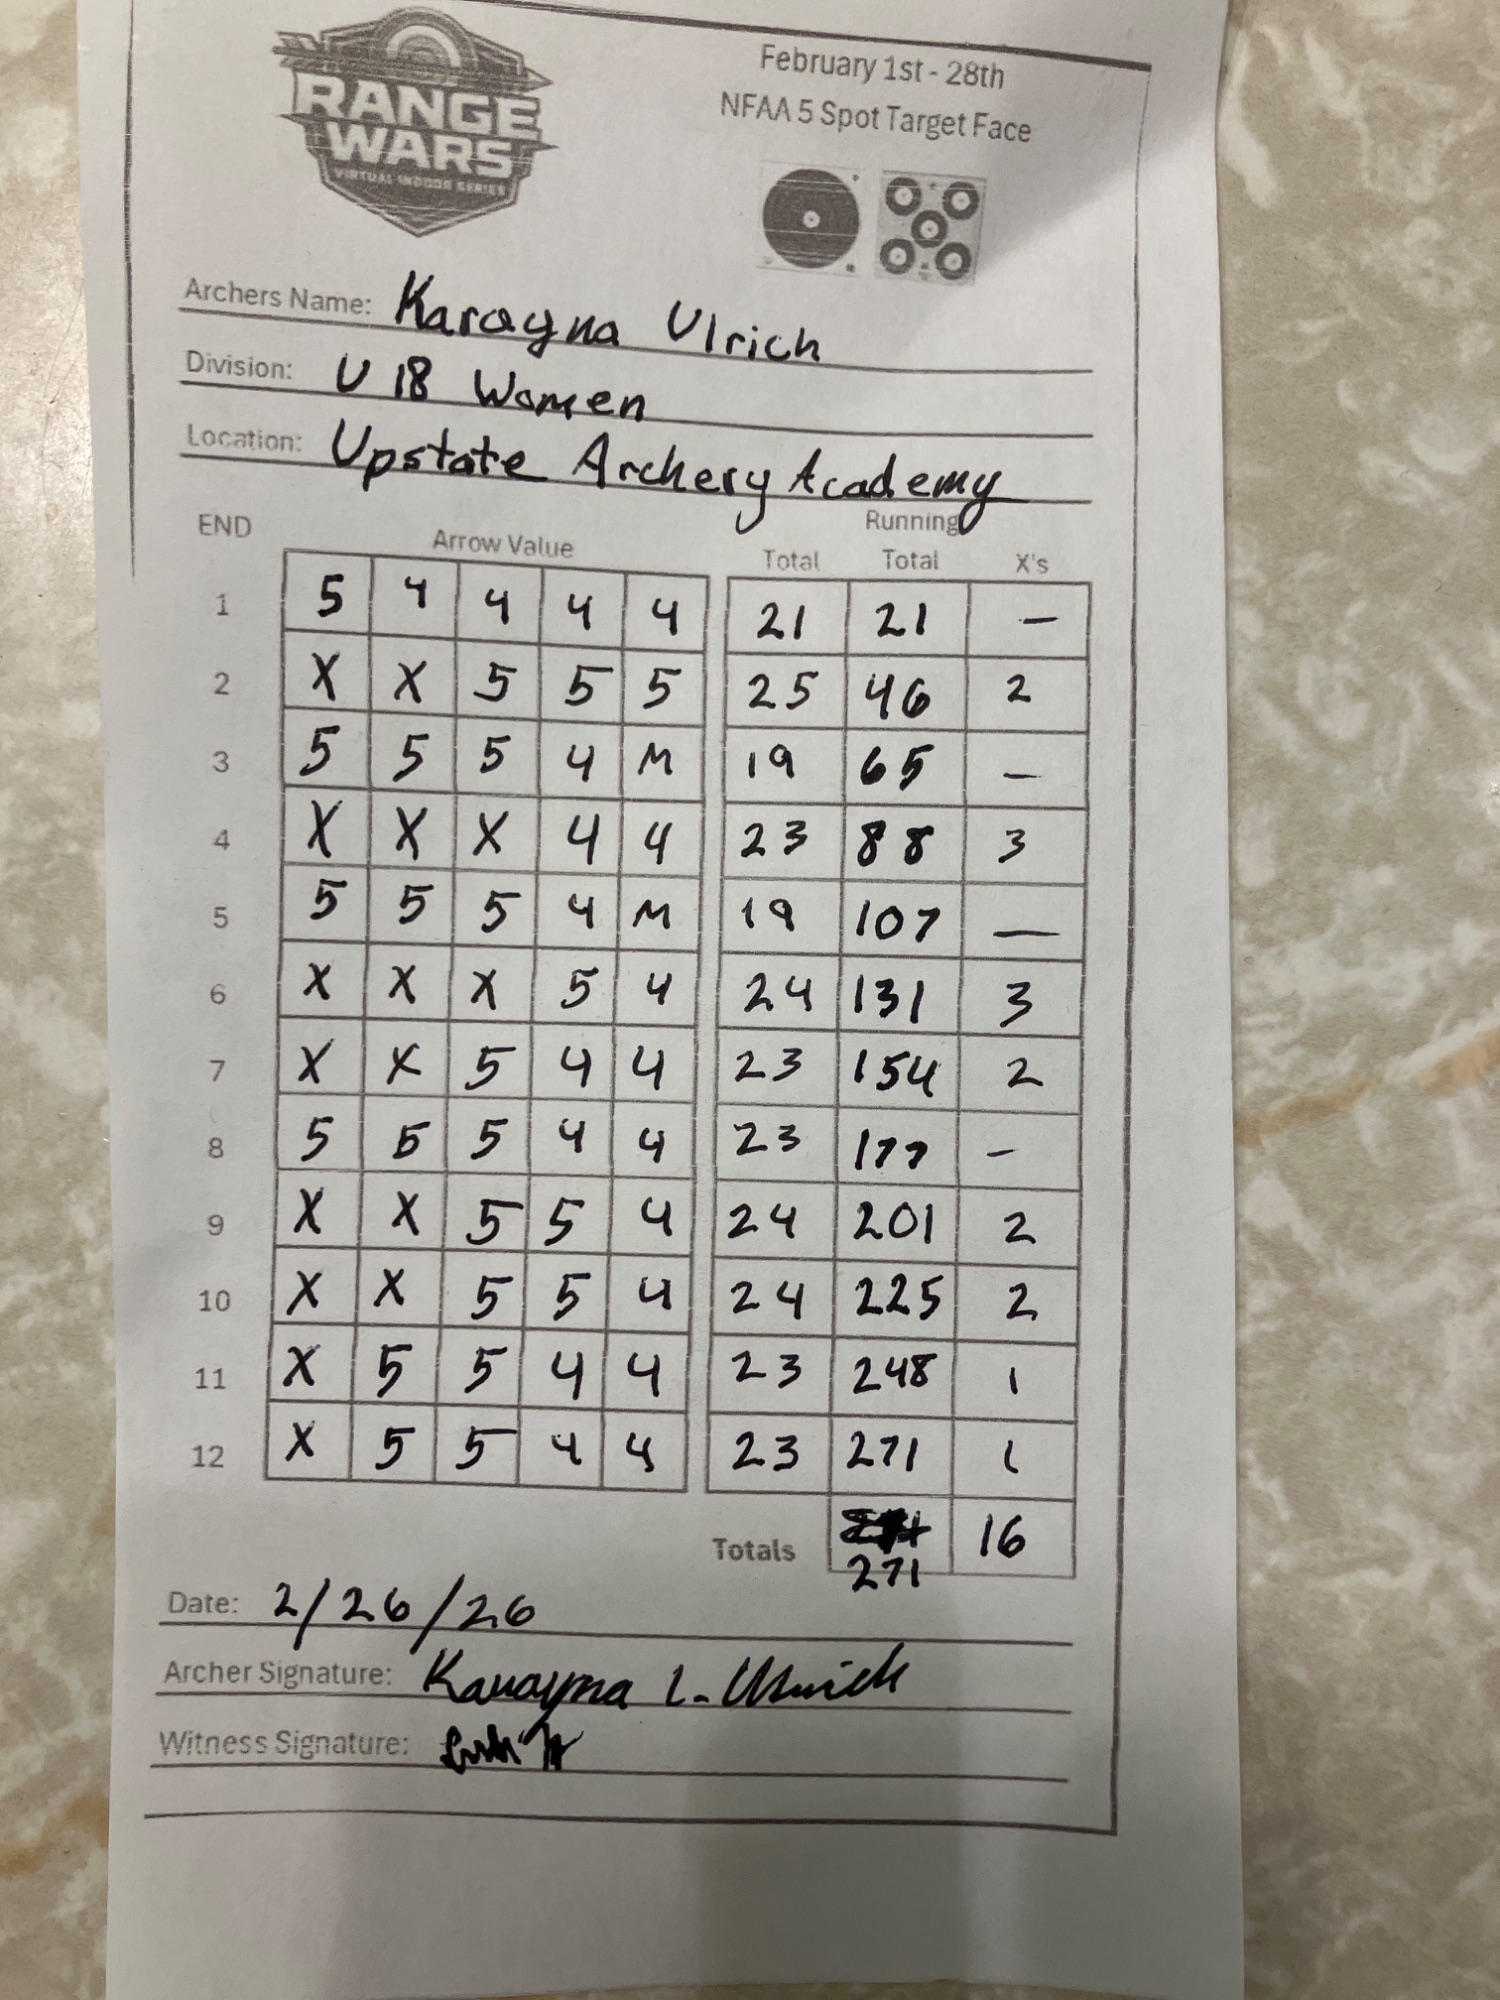 RANGE
WARS
VIRTUAL INDOOR SERIES
February 1st - 28th
NFAA 5 Spot Target Face
Archers Name: Karayna Ulrich
Division: U18 Women
Location: Upstate Archery Academy
END Arrow Value Total Running Total X's
1 5 4 4 4 4 21 21 —
2 X X 5 5 5 25 46 2
3 5 5 5 4 M 19 65 —
4 X X X 4 4 23 88 3
5 5 5 5 4 M 19 107 —
6 X X X 5 4 24 131 3
7 X X 5 4 4 23 154 2
8 5 5 5 4 4 23 177 -
9 X X 5 5 4 24 201 2
10 X X 5 5 4 24 225 2
11 X 5 5 4 4 23 248 1
12 X 5 5 4 4 23 271 1
Totals 271 16
Date: 2/26/26
Archer Signature: Karayna L. Ulrich
Witness Signature: